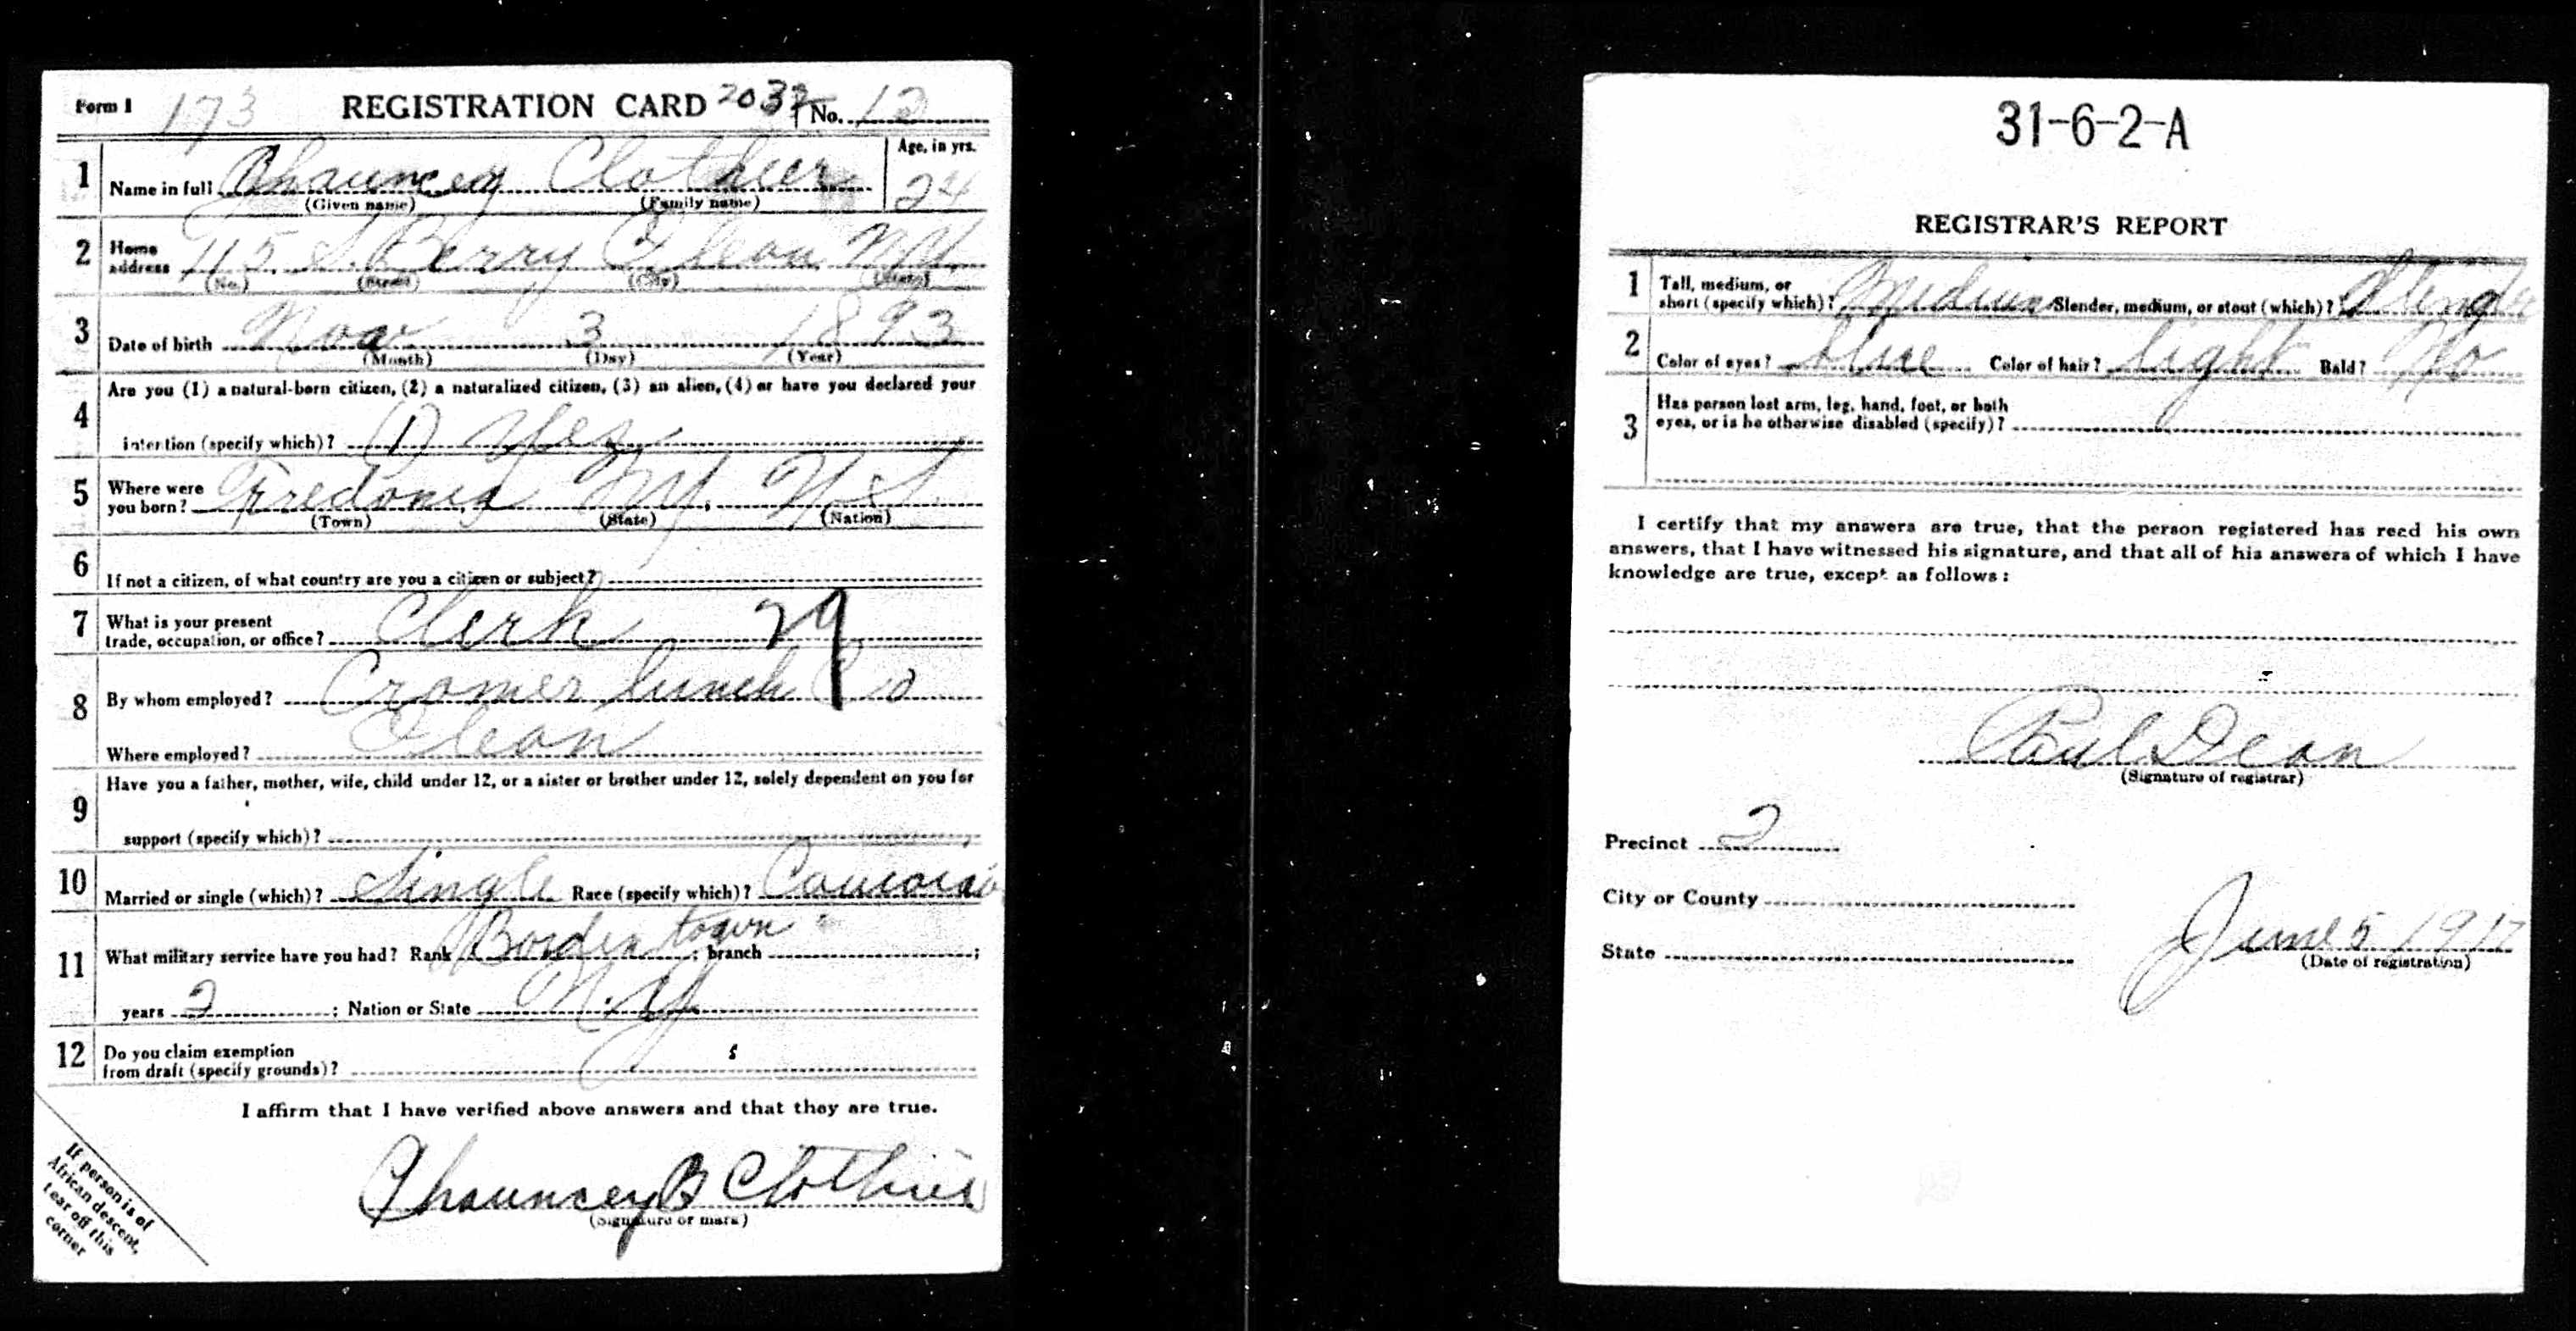 Form 1 173 REGISTRATION CARD 2037 No. 12
1 Name in full Chauncey Clothier Age, in yrs. 24
(Given name) (Family name)
2 Home address 115 S. Berry Olean N.Y.
(No.) (Street) (City) (State)
3 Date of birth Nov 3 1893
(Month) (Day) (Year)
4 Are you (1) a natural-born citizen, (2) a naturalized citizen, (3) an alien, (4) or have you declared your
intention (specify which)? (1) Yes
5 Where were you born? Fredonia N.Y.
(Town) (State) (Nation)
6 If not a citizen, of what country are you a citizen or subject?
7 What is your present trade, occupation, or office? Clerk 29
8 By whom employed? Cromer lunch Co
Where employed? Olean
9 Have you a father, mother, wife, child under 12, or a sister or brother under 12, solely dependent on you for
support (specify which)?
10 Married or single (which)? Single Race (specify which)?
11 What military service have you had? Rank Bordentown; branch ;
years 2; Nation or State
12 Do you claim exemption from draft (specify grounds)?
I affirm that I have verified above answers and that they are true.
Chauncey B Clothier
(Signature or mark)
If person is of
African descent,
tear off this
corner
31-6-2-A
REGISTRAR'S REPORT
1 Tall, medium, or short (specify which)? Medium Slender, medium, or stout (which)? Slender
2 Color of eyes? blue Color of hair? light Bald? No
3 Has person lost arm, leg, hand, foot, or both
eyes, or is he otherwise disabled (specify)?
I certify that my answers are true, that the person registered has read his own
answers, that I have witnessed his signature, and that all of his answers of which I have
knowledge are true, except as follows:
Paul Dean
(Signature of registrar)
Precinct 2
City or County
State
June 5 1917
(Date of registration)